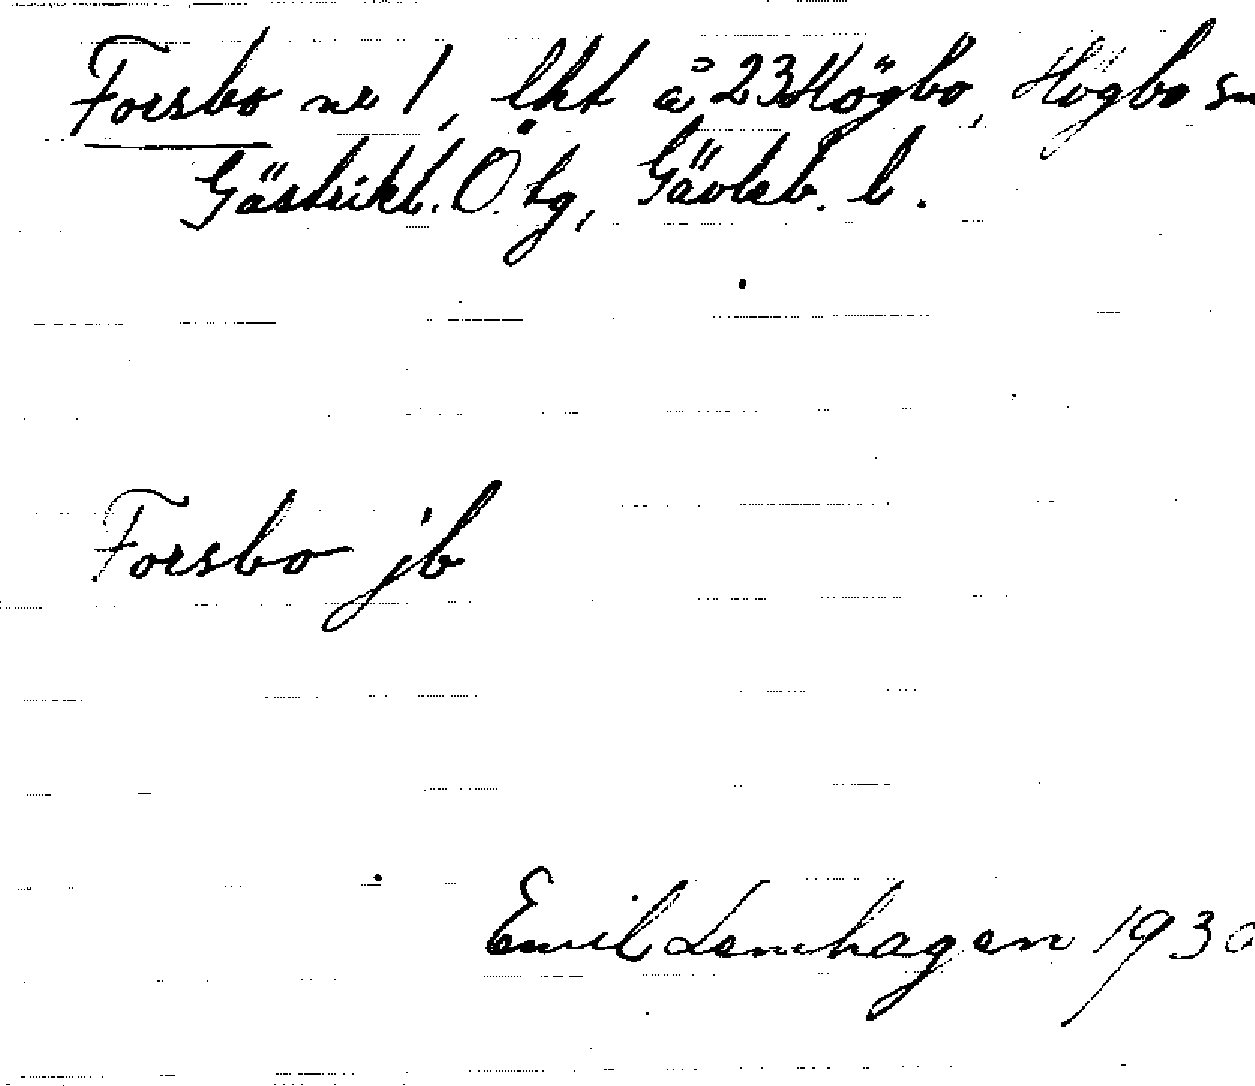 Forsbo nr 1, lht å 23 Högbo, Högbo sn
Gästrikl. Ö. tg, Gävleb. l.
Forsbo jb
Emil Lemhagen 1930